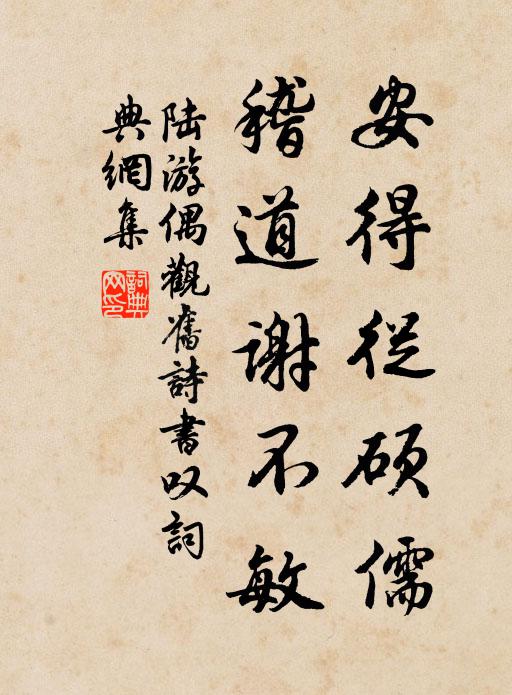 安得從碩儒
稽道謝不敏
陆游偶觀舊詩書叹詞
典網集
詞典网印